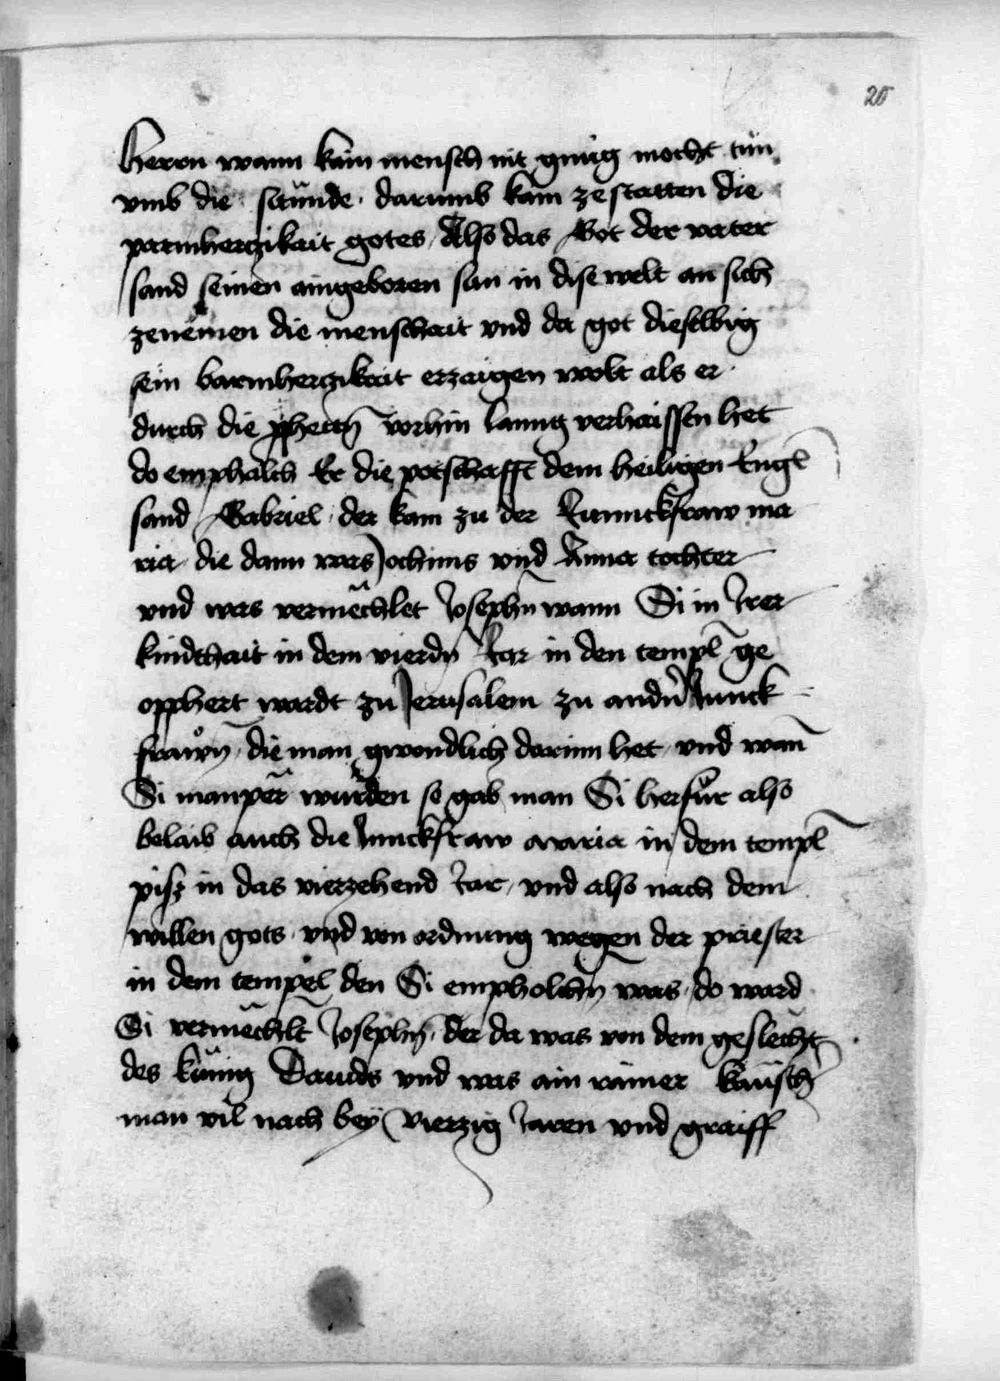 20
Herrn wann kain mensch nit gnůg mocht tůn
vmb die sůnde · darumb kam ze statten die
parmherczikait gotes / Also das Got der vater
sand seinen aingeboren sun in dise welt an sich
zenemen die menschait vnd da got dieselbig
sein barmherczikait erzaigen wolt als er
durch die ꝓphetñ vorhin lanng verhaissen het
do emphalch Er die potschafft dem heiligen Engl̄
sand Gabriel / der kam zu der Junnckfraw ma
ria die dann was Jochims vnd Anna tochter
vnd was vermëchlet Josephñ wann Si in Jrer
kindthait in dem vierdñ Jar in den templ̄ ge
opphert wardt zu Jerusalem zu andñ Junnck
frawn̄ / die man gwondlich darinn het / vnd wañ
Si manper̄ wurden so gab man Si herfůr also
belaib auch die Junnckfraw maria in dem templ̄
pisz in das vierzehend Jar / vnd also nach dem
willen gots / vnd von ordnung wegen der priester
in dem tempel den Si empholhñ was / do ward
Si vermëchlt Josephñ / der da was von dem geslëcht
des kŭnig Dauids vnd was ain rainer kaüsch̄
man vil nach beÿ vierzig Jaren vnd graiff